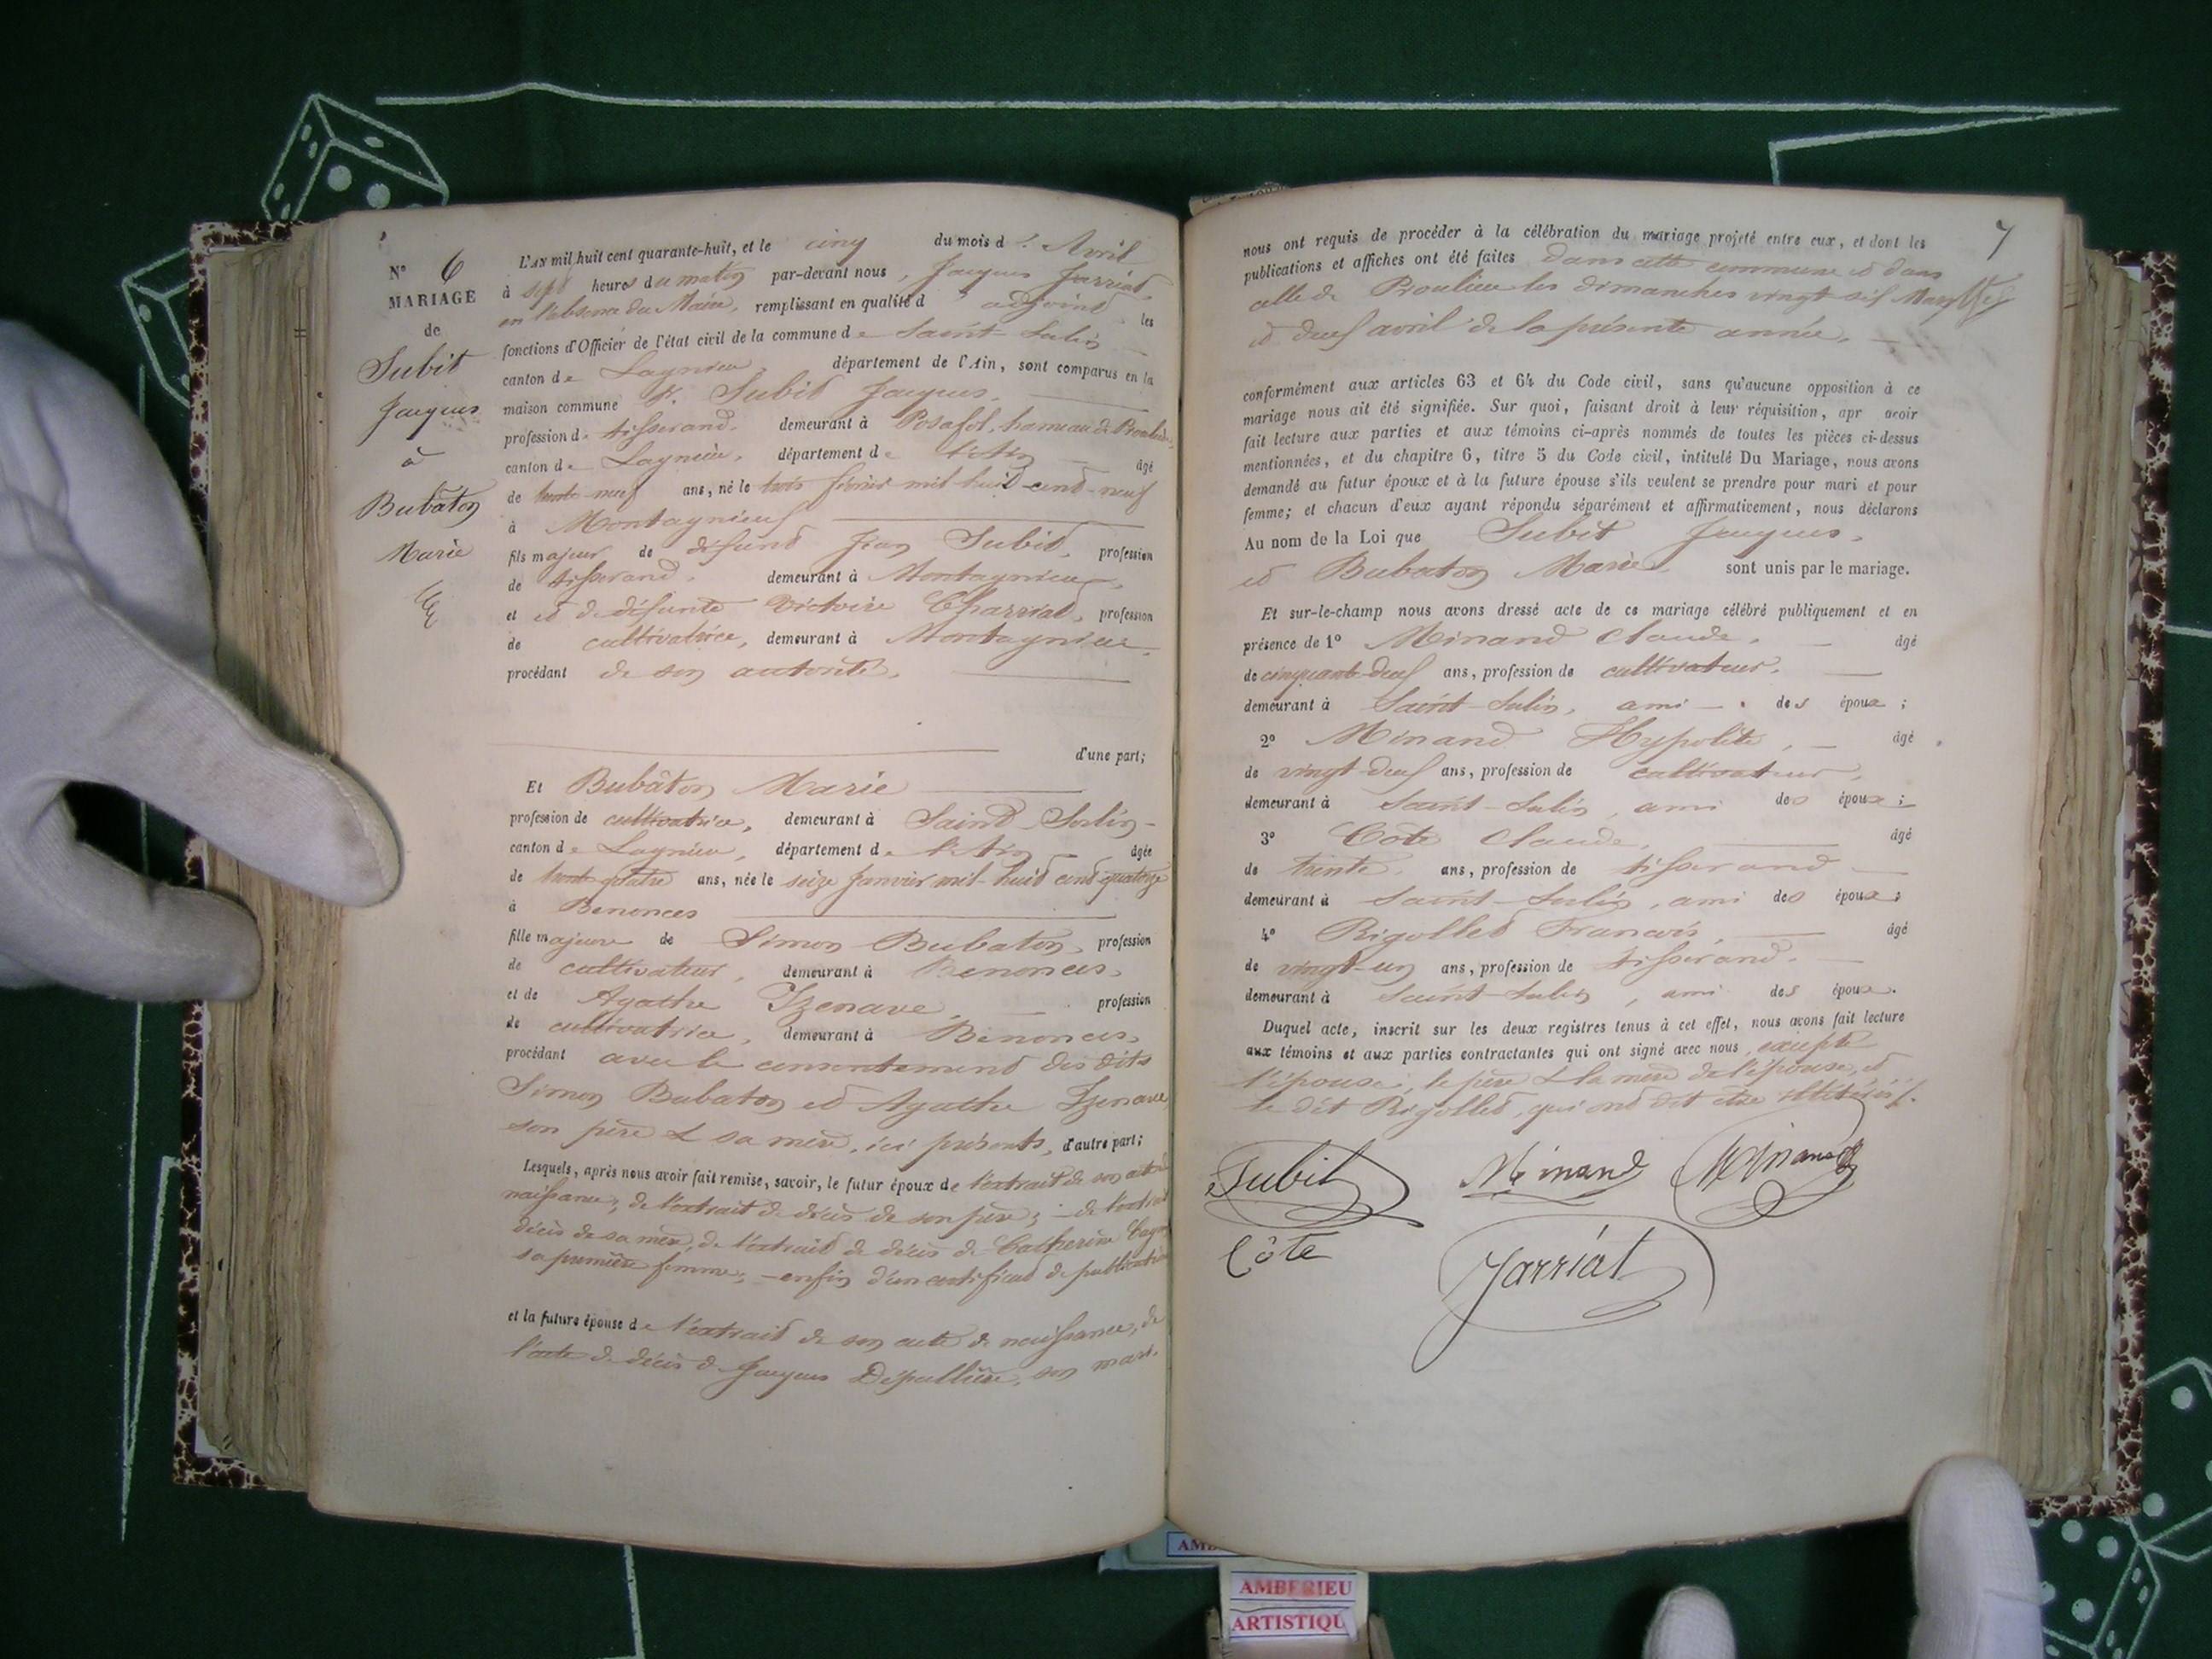 N° 6
MARIAGE
de
Subit
Jacques
à
Bubaton
Marie
L'AN mil huit cent quarante-huit, et le cinq du mois d' Avril
à sept heures du matin par-devant nous, Jacques Jarriat,
en l'absence du Maire, remplissant en qualité d' adjoint les
fonctions d'Officier de l'état civil de la commune de Saint-Sulin
canton de Lagnieu, département de l'Ain, sont comparus en la
maison commune Subit Jacques,
profession de tisserand, demeurant à Posafol, hameau de Proulieu,
canton de Lagnieu, département de l'Ain âgé
de trente-neuf ans, né le trois février mil huit cent-neuf
à Montagnieux
fils majeur de défunt Jean Subit, profession
de tisserand, demeurant à Montagnieux,
et et de défunte Victoire Charriat, profession
de cultivatrice, demeurant à Montagnieu,
procédant de son autorité,
d'une part;
Et Bubâton Marie
profession de cultivatrice, demeurant à Saint-Sorlin
canton de Lagnieu, département de l'Ain âgée
de trente-quatre ans, née le seize Janvier mil-huit cent quatorze
à Benonces
fille majeure de Simon Bubaton, profession
de cultivateur, demeurant à Benonces,
et de Agathe Izenave, profession
de cultivatrice, demeurant à Benonces,
procédant avec le consentement des dits
Simon Bubaton et Agathe Izenave,
son père & sa mère, ici présents, d'autre part;
Lesquels, après nous avoir fait remise, savoir, le futur époux de l'extrait de son acte de
naissance; de l'extrait de décès de son père; - de l'extrait
décès de sa mère, de l'extrait de décès de Catherine
sa première femme; - enfin d'un certificat de publication
et la future épouse de l'extrait de son acte de naissance, de
l'acte de décès de Jacques Dépallière, son mari.
7
nous ont requis de procéder à la célébration du mariage projeté entre eux, et dont les
publications et affiches ont été faites dans cette commune et dans
celle de Proulieu les dimanches vingt-six Mars
et deux avril de la présente année.
conformément aux articles 63 et 64 du Code civil, sans qu'aucune opposition à ce
mariage nous ait été signifiée. Sur quoi, faisant droit à leur réquisition, apr avoir
fait lecture aux parties et aux témoins ci-après nommés de toutes les pièces ci-dessus
mentionnées, et du chapitre 6, titre 5 du Code civil, intitulé Du Mariage, nous avons
demandé au futur époux et à la future épouse s'ils veulent se prendre pour mari et pour
femme; et chacun d'eux ayant répondu séparément et affirmativement, nous déclarons
Au nom de la Loi que Subit Jacques,
et Bubaton Marie sont unis par le mariage.
Et sur-le-champ nous avons dressé acte de ce mariage célébré publiquement et en
présence de 1° Minand Claude, âgé
de cinquante-deux ans, profession de cultivateur,
demeurant à Saint-Sulin, ami des époux;
2° Minand Hypolite, âgé
de vingt-deux ans, profession de cultivateur,
demeurant à Saint-Sulin, ami des époux;
3° Cote Claude, âgé
de trente ans, profession de tisserand
demeurant à Saint-Sulin, ami des époux;
4° Rigollet Francois, âgé
de vingt-un ans, profession de tisserand.
demeurant à Saint-Sulin, ami des époux.
Duquel acte, inscrit sur les deux registres tenus à cet effet, nous avons fait lecture
aux témoins et aux parties contractantes qui ont signé avec nous, excepté
l'épouse, le père & la mère de l'épouse, et
le dit Rigollet, qui ont dit être illitérés.
Subit
Minand
Minand
Côte
Jarriat
AMBERIEU
ARTISTIQU